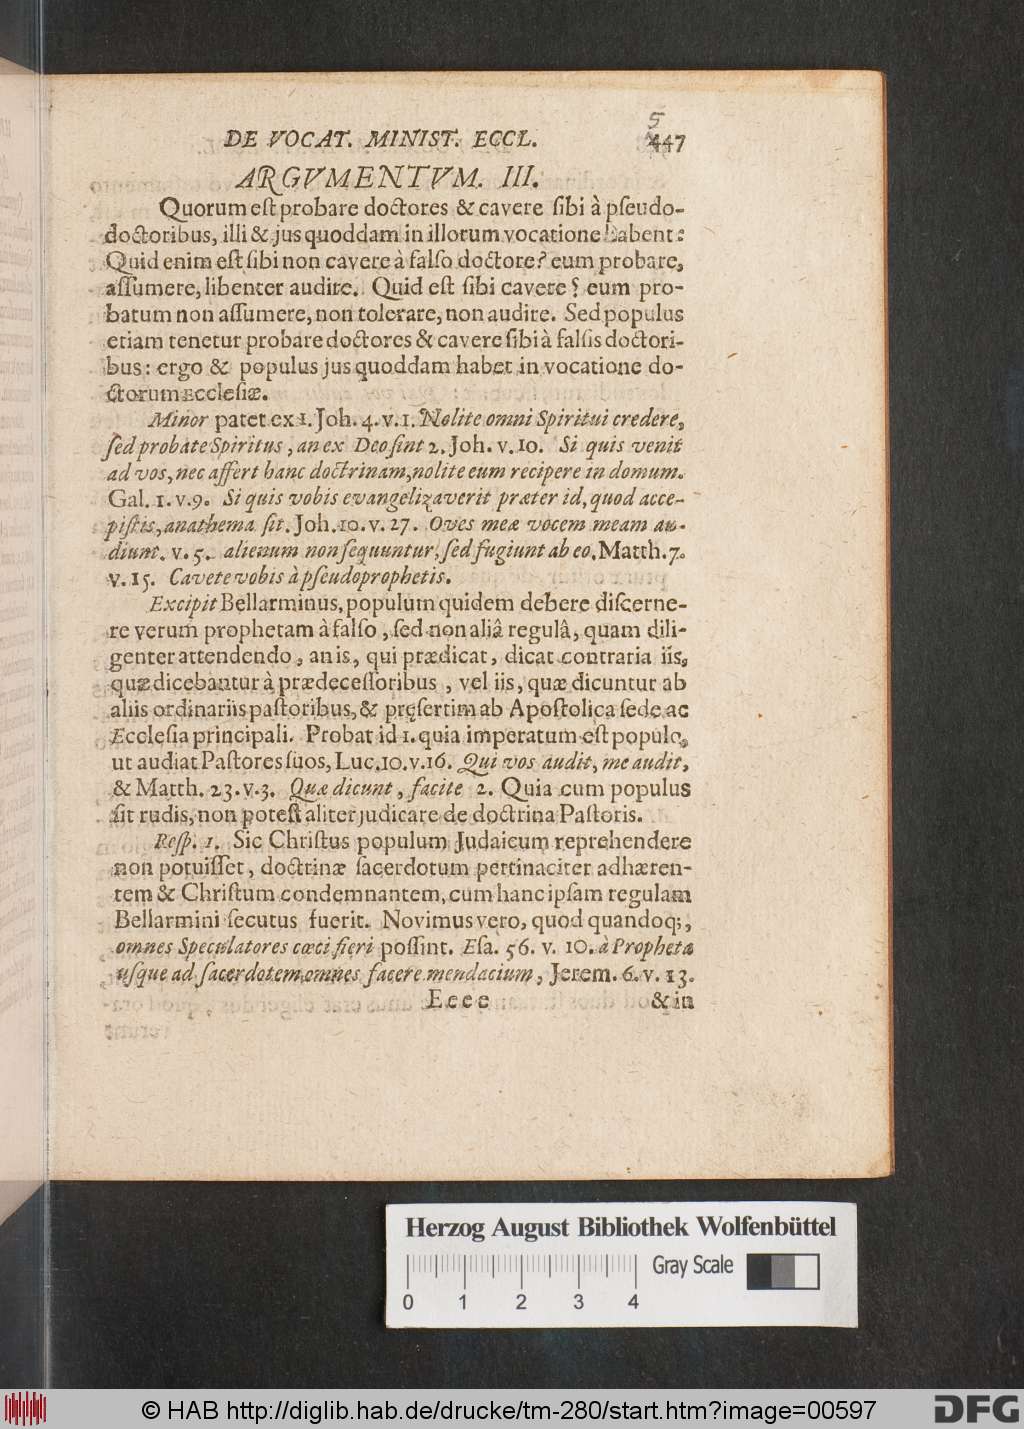 5
DE VOCAT. MINIST. ECCL. 447
ARGVMENTVM. III.
Quorum eſt probare doctores & cavere ſibi à pſeudo-
doctoribus, illi & jus quoddam in illorum vocatione habent:
Quid enim eſt ſibi non cavere à falſo doctore? eum probare,
aſſumere, libenter audire. Quid eſt ſibi cavere? eum pro-
batum non aſſumere, non tolerare, non audire. Sed populus
etiam tenetur probare doctores & cavere ſibi à falſis doctori-
bus: ergo & populus jus quoddam habet in vocatione do-
ctorum Eccleſiæ.
Minor patet ex 1. Joh. 4. v. 1. Nolite omni Spiritui credere,
ſed probate Spiritus, an ex Deo ſint 2. Joh. v. 10. Si quis venit
ad vos, nec affert hanc doctrinam, nolite eum recipere in domum.
Gal. 1. v. 9. Si quis vobis evangelizaverit præter id, quod acce-
piſtis, anathema ſit. Joh. 10. v. 27. Oves meæ vocem meam au-
diunt. v. 5. alienum non ſequuntur, ſed fugiunt ab eo. Matth. 7.
v. 15. Cavete vobis à pſeudoprophetis.
Excipit Bellarminus, populum quidem debere diſcerne-
re verum prophetam à falſo, ſed non aliâ regulâ, quam dili-
genter attendendo, an is, qui prædicat, dicat contraria iis,
quæ dicebantur à prædeceſſoribus, vel iis, quæ dicuntur ab
aliis ordinariis paſtoribus, & pręſertim ab Apoſtolica ſede ac
Eccleſia principali. Probat id 1. quia imperatum eſt populo,
ut audiat Paſtores ſuos, Luc. 10. v. 16. Qui vos audit, me audit,
& Matth. 23. v. 3. Quæ dicunt, facite 2. Quia cum populus
ſit rudis, non poteſt aliter judicare de doctrina Paſtoris.
Reſp. 1. Sic Chriſtus populum Judaicum reprehendere
non potuiſſet, doctrinæ ſacerdotum pertinaciter adhæren-
tem & Chriſtum condemnantem, cum hanc ipſam regulam
Bellarmini ſecutus fuerit. Novimus vero, quod quandoq;,
omnes Speculatores cæci fieri poſſint. Eſa. 56. v. 10. à Propheta
uſque ad ſacerdotem omnes facere mendacium, Jerem. 6. v. 13.
Eeee & in
Herzog August Bibliothek Wolfenbüttel
Gray Scale
0 1 2 3 4
© HAB http://diglib.hab.de/drucke/tm-280/start.htm?image=00597
DFG